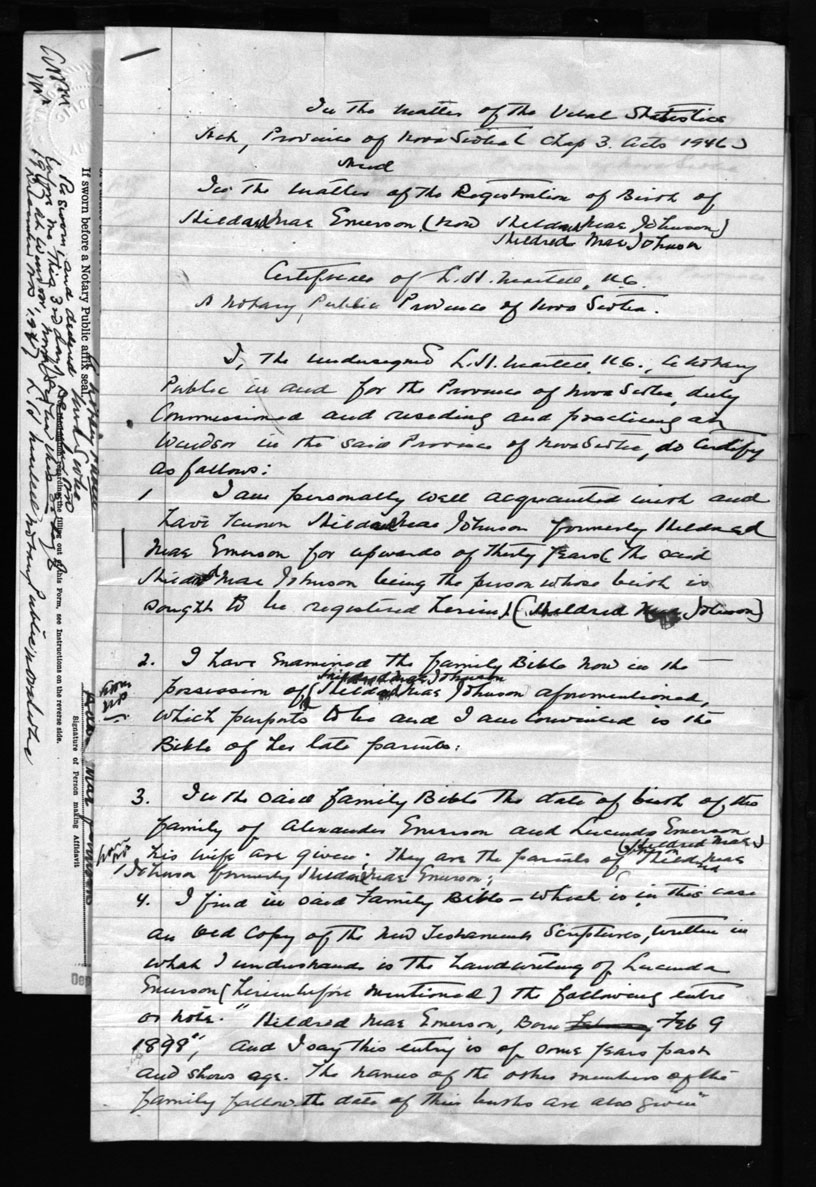 In the matter of the Vital Statistics
Act, Province of Nova Scotia (Chap 3. Acts 1946)
And
In the matter of the Registration of Birth of
Hildred Mae Emerson (now Hildred Mae Johnson)
Mildred Mae Johnson
Certificate of L. H. Martell, K.C.
A Notary Public Province of Nova Scotia.
I, the undersigned L. H. Martell, K.C., a Notary
Public in and for the Province of Nova Scotia, duly
Commissioned and residing and practicing at
Windsor in the said Province of Nova Scotia, do certify
as follows:
1 I am personally well acquainted with and
have known Mae Johnson formerly
Mae Emerson for upwards of thirty years (the said
Mae Johnson being the person whose birth is
sought to be registered herein) (Mildred Mae Johnson)
2. I have examined the family Bible now in the
Mildred Mae Johnson
possession of Mae Johnson aforementioned,
which purports to be and I am convinced is the
Bible of her late parents:
3. In the said family Bible the date of birth of the
family of Alexander Emerson and Lucinda Emerson
(Mildred Mae)
his wife are given; they are the parents of Mae
Johnson formerly Mae Emerson;
4. I find in said Family Bible - which is in this case
an old copy of the New Testament Scriptures, written in
what I understand is the handwriting of Lucinda
Emerson (hereinbefore mentioned) the following entre
or note. "Mildred Mae Emerson, Born February Feb 9
1898", and I say this entry is of some years past
and shows age. The names of the other members of the
family follow the date of their births are also given"
If sworn before a Notary Public affix seal.
Re sworn and
before me this 3rd day
1947 at Windsor, Nova Scotia
L H Martell Notary Public Nova Scotia
filling out of this Form, see Instructions on the reverse side.
Signature of Person making Affidavit
Mae Johnson
Dep